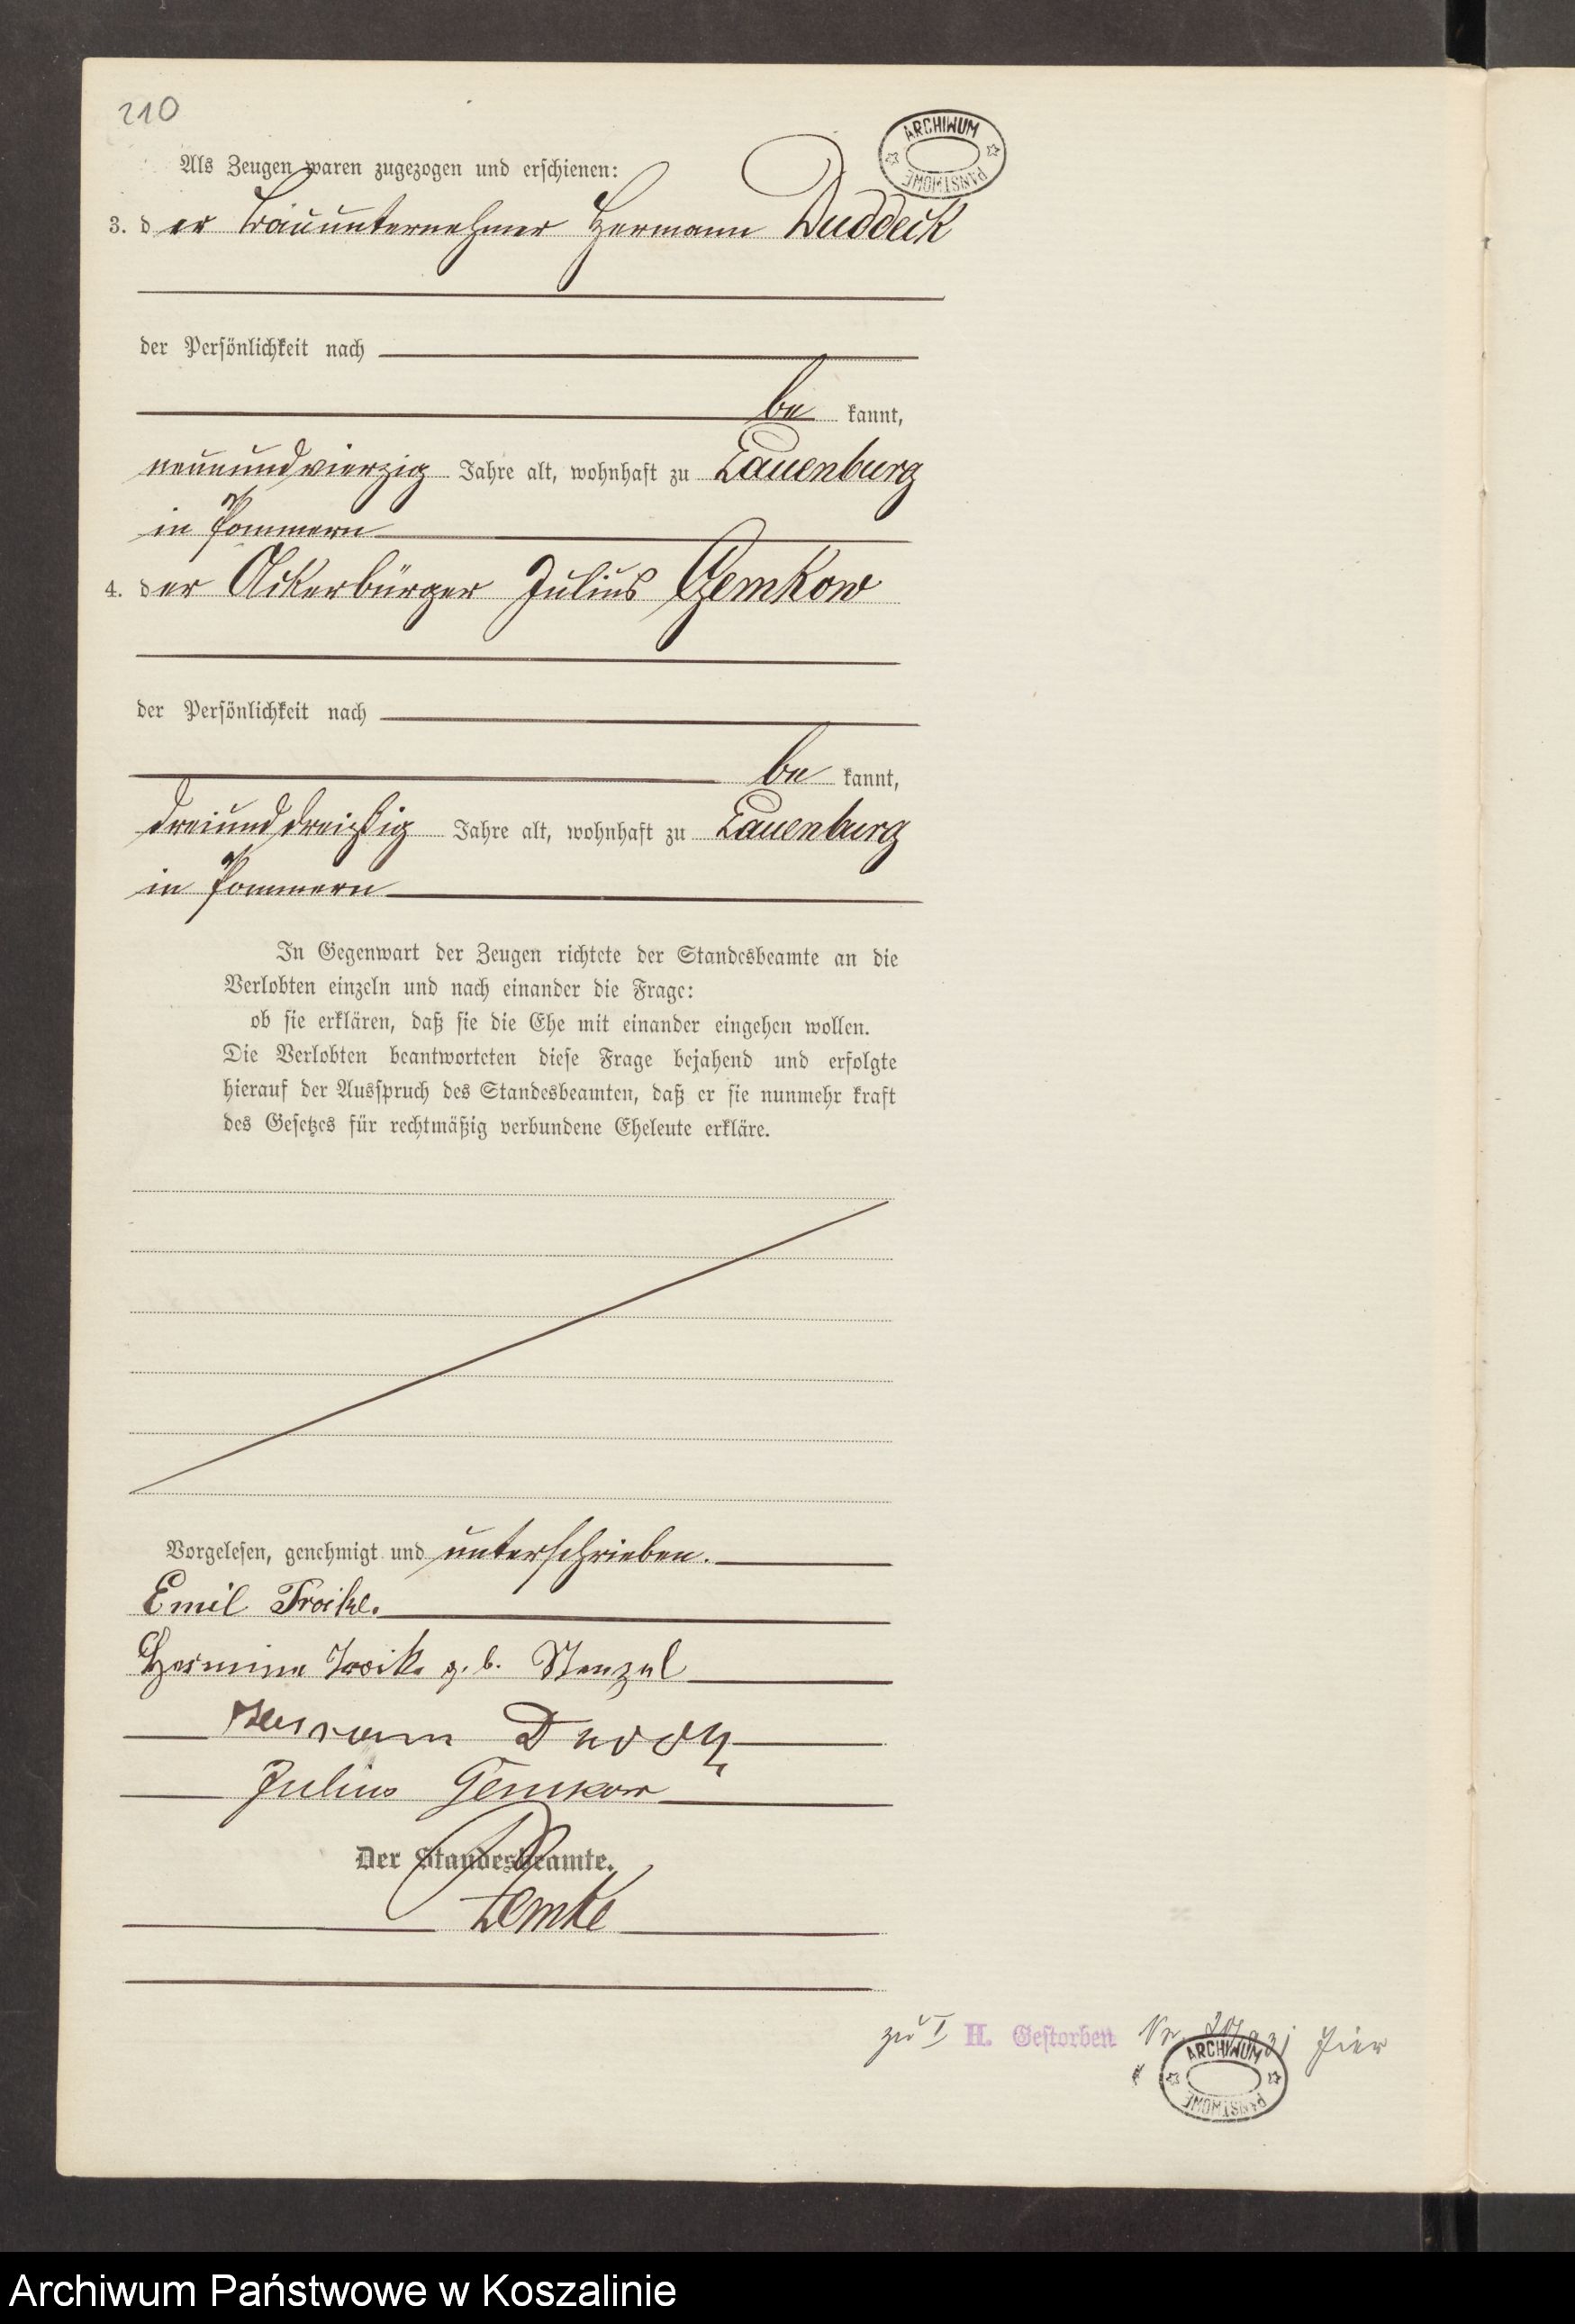 210
ARCHIWUM PAŃSTWOWE
Als Zeugen waren zugezogen und erschienen:
3. der Bauunternehmer Hermann Duddeck
der Persönlichkeit nach
be kannt,
neunundvierzig Jahre alt, wohnhaft zu Lauenburg
in Pommern
4. der Ackerbürger Julius Gemkow
der Persönlichkeit nach
be kannt,
dreiunddreißig Jahre alt, wohnhaft zu Lauenburg
in Pommern
In Gegenwart der Zeugen richtete der Standesbeamte an die
Verlobten einzeln und nach einander die Frage:
ob sie erklären, daß sie die Ehe mit einander eingehen wollen.
Die Verlobten beantworteten diese Frage bejahend und erfolgte
hierauf der Ausspruch des Standesbeamten, daß er sie nunmehr kraft
des Gesetzes für rechtmäßig verbundene Eheleute erkläre.
Vorgelesen, genehmigt und unterschrieben.
Emil Troike.
Hermine Troike g. b. Stenzel
Hermann
Julius Gemkow
Der Standesbeamte.
Lemke
zu I H. Gestorben Nr. hier
ARCHIWUM PAŃSTWOWE
Archiwum Państwowe w Koszalinie